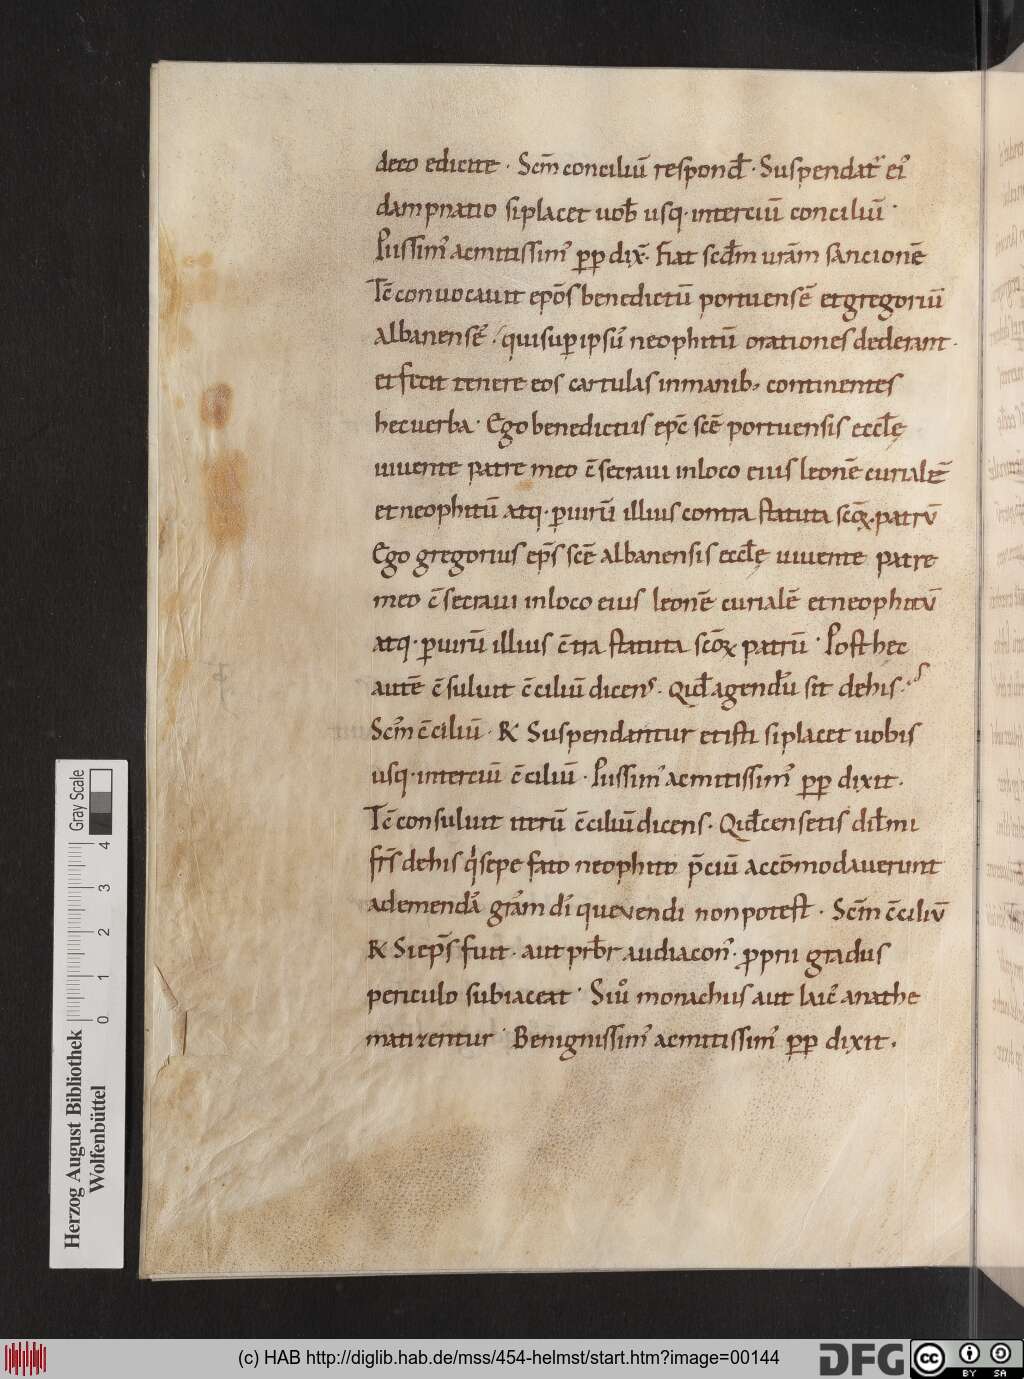 deeo edicite · Scm̄ conciliū respond̄ · Suspendat᷑ eī
dampnatio siplacet uob̄ usq· interciū conciliū ·
Piissim̄ acmitissim̄ pp dix̄· Fiat scd̄m ur̄am sancionē
Tc̄ conuocauit ep̄os benedictū portuensē etgregoriū
albanensē · quisup ipsū neophitū orationes dederant ·
etfecit tenere eos cartulas inmanib; continentes
hecuerba · Ego benedictus ep̄c scē portuensis eccl̄ę
uiuente patre meo c̄secraui inloco eius leonē curialē
etneophitū atq· piurū illius contra statuta scōꝝ patrū
Ego gregorius ep̄s scē albanensis eccl̄ę uiuente patre
meo c̄secraui inloco eius leonē curialē etneophitū
atq· piurū illius c̄tra statuta scōꝝ patrū · Posthec
autē c̄suluit c̄ciliū dicens · Qid̄ agendū sit dehis ·
Scm̄ c̄ciliū · R Suspendantur etisti siplacet uobis
usq· interciū c̄ciliū · Piissim̄ acmitissim̄ pp dixit ·
Tc̄ consuluit iterū c̄ciliū dicens · Qid̄ censetis dil̄mi
fr̄s dehis q̇sepe fato neophito p̄ciū accōmodauerunt
ademendā gr̄am dī queuendi nonpotest · Scm̄ c̄ciliū
R Siep̄s fuit · aut prb̄r audiacon̄ · pprii gradus
periculo subiaceat · Siū monachus aut laic̄ anathe
matizentur · Benignissim̄ acmitissim̄ pp dixit ·
Gray Scale
4
3
2
1
0
Herzog August Bibliothek
Wolfenbüttel
(c) HAB http://diglib.hab.de/mss/454-helmst/start.htm?image=00144
DFG
cc
BY SA